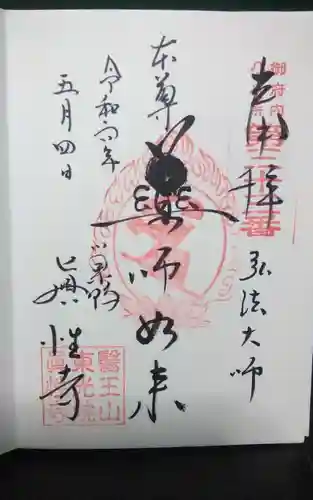 奉拝
弘法大師
本尊
薬師如来
令和六年
五月四日
興性寺
御府内
八十八ヶ所
第二十番
醫王山
東光院